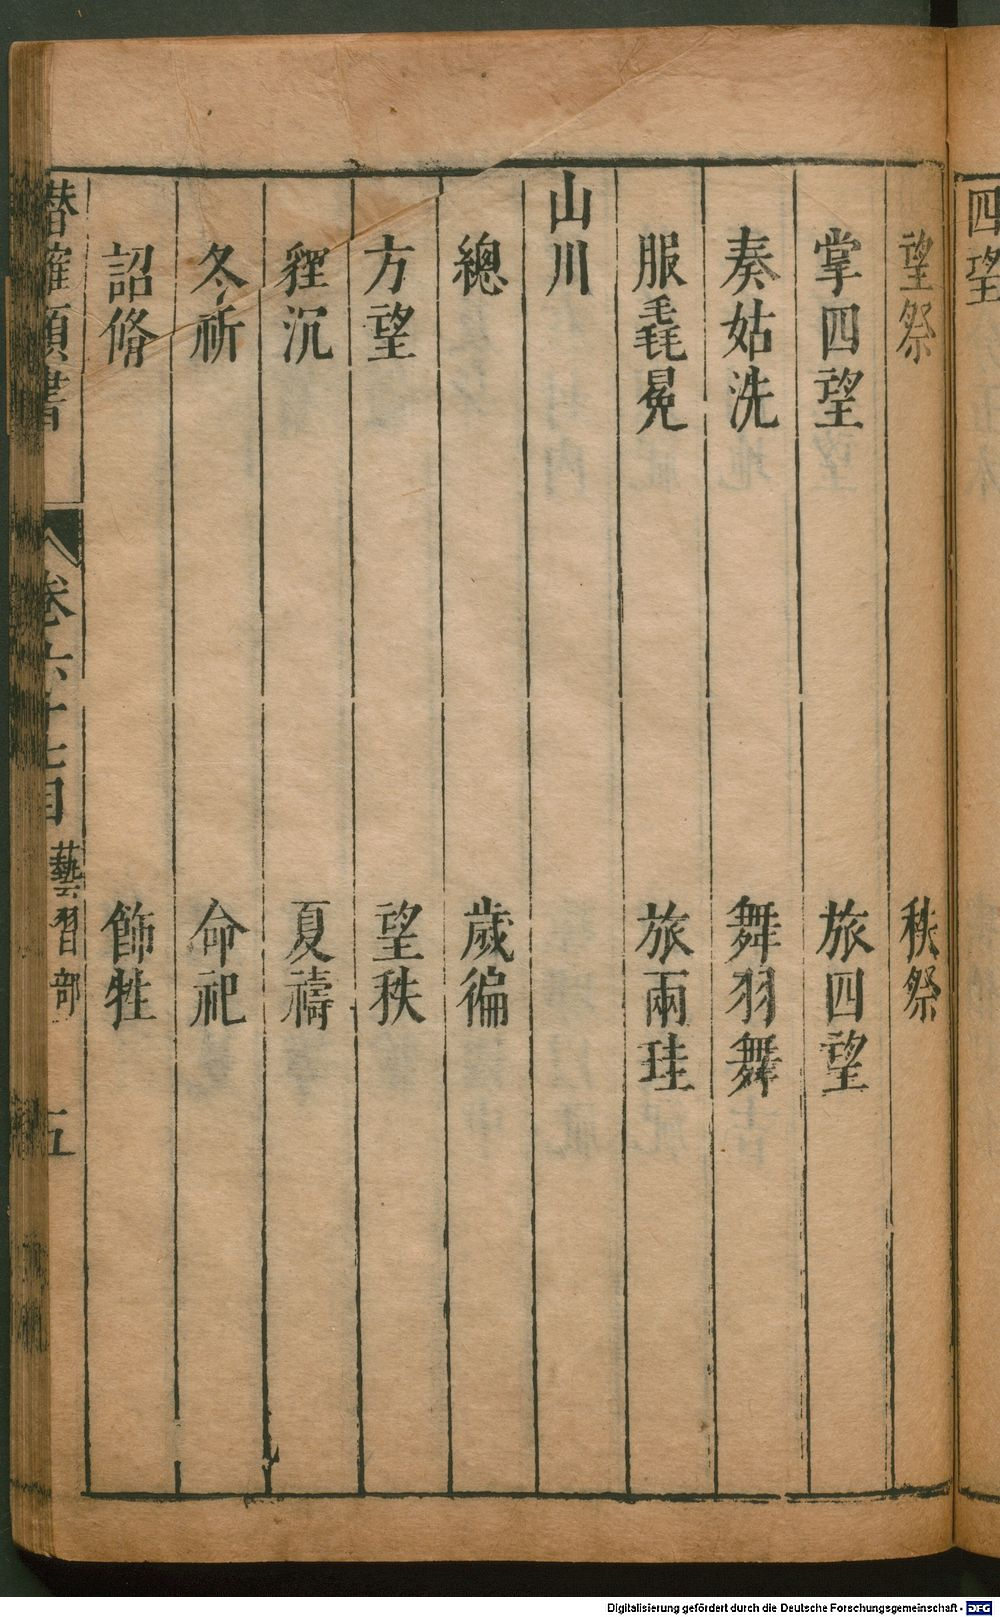 四望
望祭 秩祭
掌四望 旅四望
奏姑洗 舞羽舞
服毳冕 旅兩珪
山川
總 歲徧
方望 望秩
貍沉 夏禱
冬祈 命祀
詔脩 飾牲
潛確類書 卷六十七目 藝習部 五
Digitalisierung gefördert durch die Deutsche Forschungsgemeinschaft - DFG